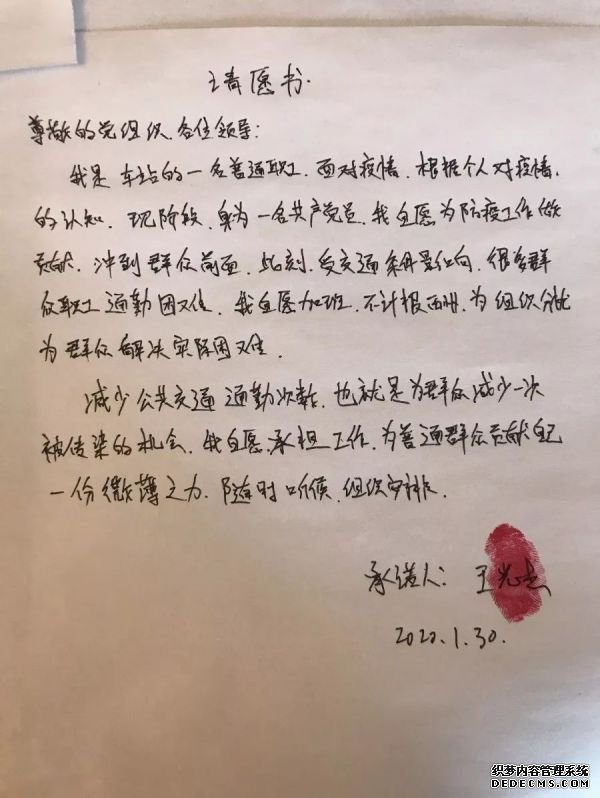 请愿书
尊敬的党组织、各位领导:
我是车站的一名普通职工,面对疫情,根据个人对疫情,
的认知,现阶段,身为一名共产党员,我自愿为防疫工作做
贡献,冲到群众前面,此刻,受交通条件影响,很多群
众职工通勤困难,我自愿加班,不计报酬,为组织分忧
为群众解决实际困难.
减少公共交通通勤次数,也就是为群众减少一次
被传染的机会,我自愿承担工作,为普通群众贡献自己
一份微薄之力,随时听候,组织安排.
承诺人:王光
2020.1.30.
织梦内容管理系统
DEDECMS.COM